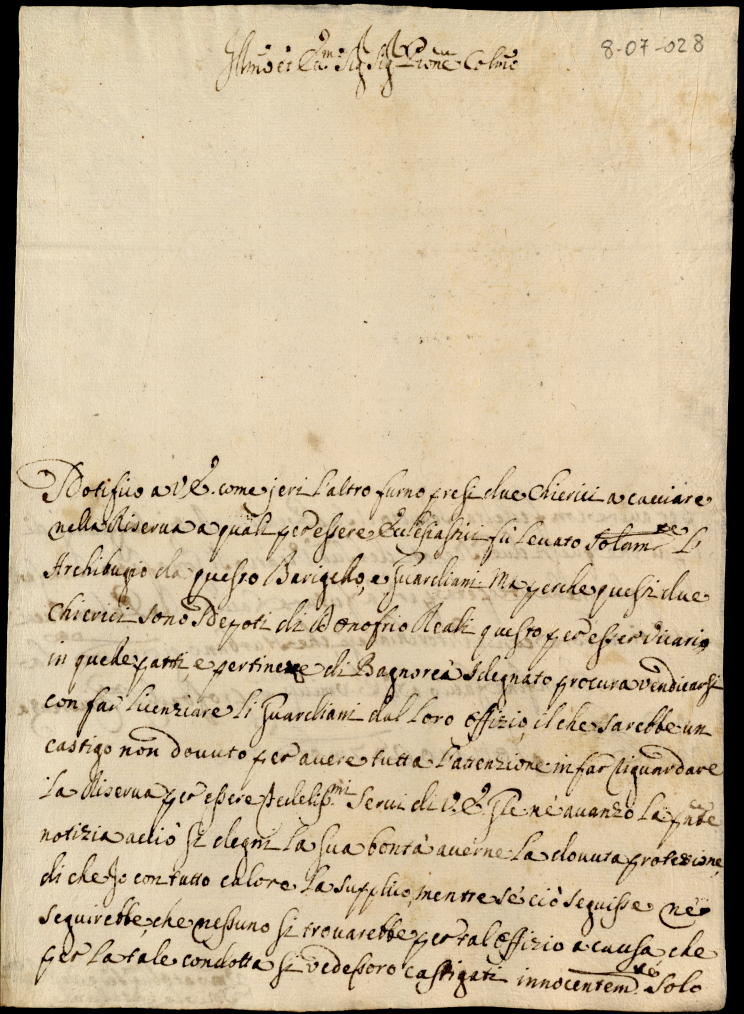 8-07-028
Illmo et Ecc.mo Sig. Sig. Prone Colmo
Notifico a V.E. come jeri l'altro furno presi due Chierici a cacciare
nella Riserva a quali per essere Ecclesiastici fu levato solam.te l'
Archibugio da questo Barigello, e Guardiani. Ma perche questi due
Chierici sono Nepoti di D. Onofrio Reali questo per esser Vicario
in quelle parti, e pertinenze di Bagnorea sdegnato procura vendicarsi
con far licenziare li Guardiani dal loro Offizio, il che sarebbe un
castigo non dovuto per avere tutta l'attenzione in far riguardare
la Riserva per essere fedeliss.mi Servi di V.E. Gle nè avanzo la pnte
notizia acciò si degni la sua bontà averne la dovuta protezione,
di che Io con tutto calore la supplico, mentre se ciò seguisse ne
seguirebbe, che nessuno si trovarebbe per tal Offizio a causa, che
per la tale condotta si vedessoro castigati innocentem.te Solo